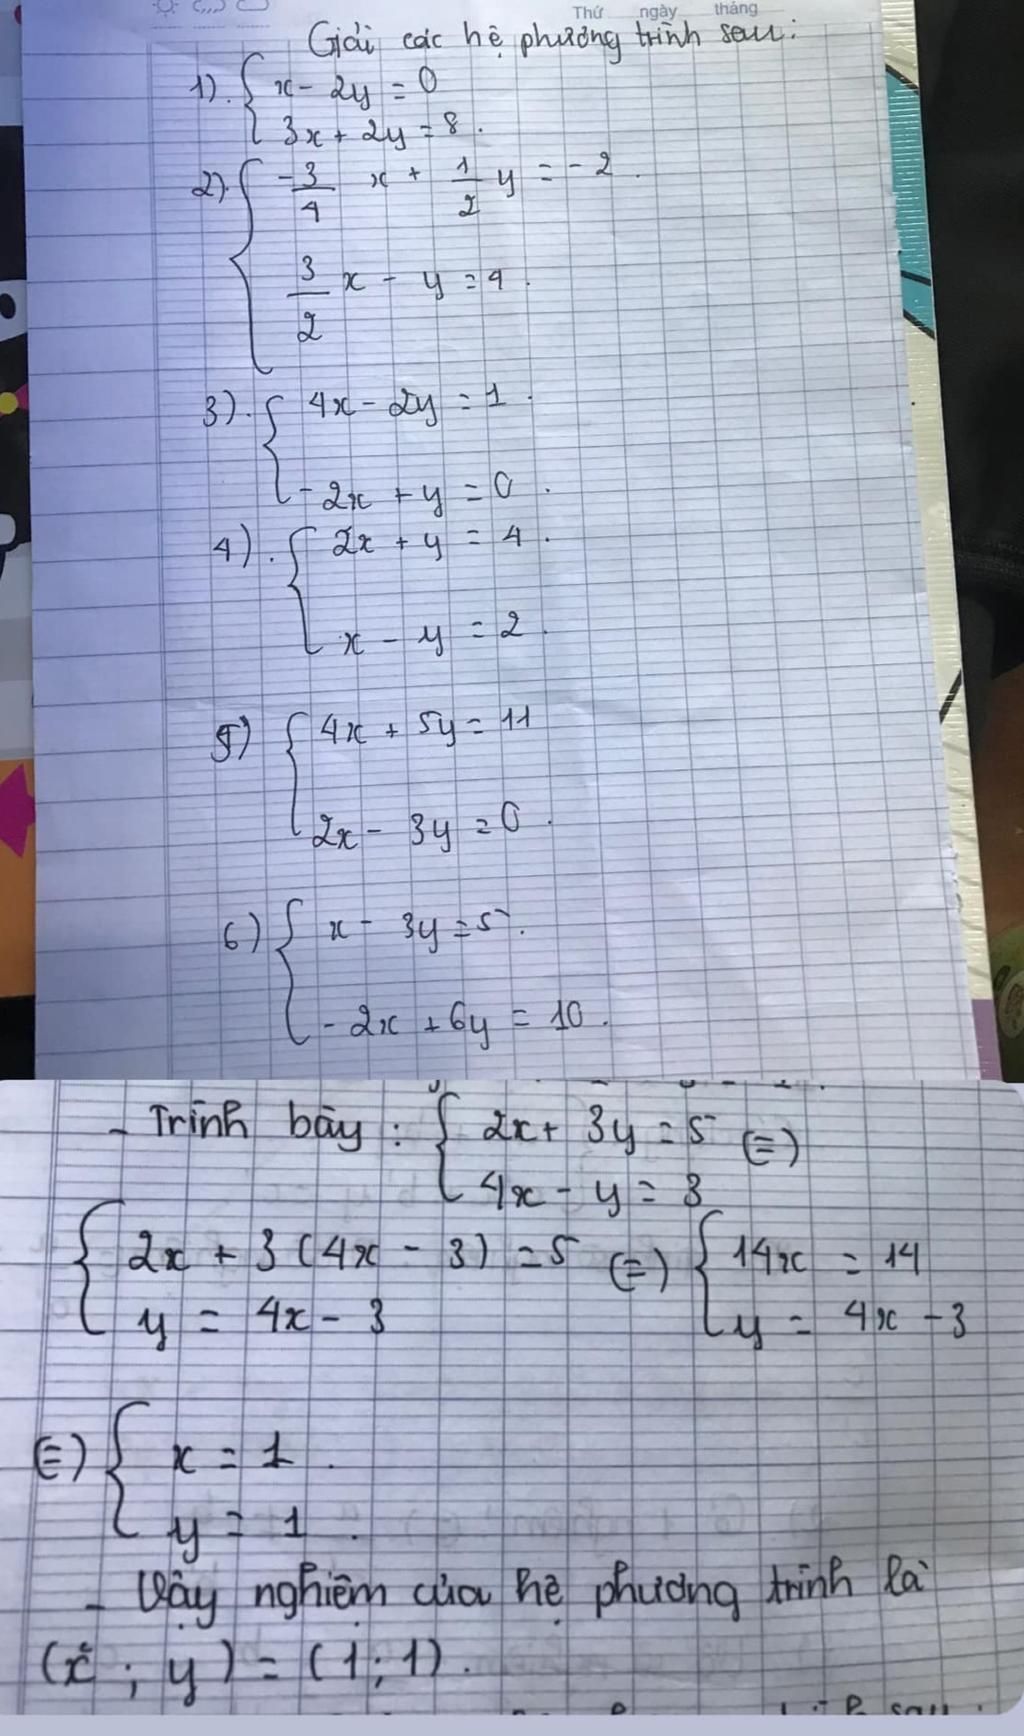 Thứ ngày tháng
Giải các hệ phương trình sau:
1). { x - 2y = 0
3x + 2y = 8.
2). { -3/4 x + 1/2 y = -2.
3/2 x - y = 4.
3). { 4x - 2y = 1.
-2x + y = 0.
4). { 2x + y = 4.
x - y = 2.
5) { 4x + 5y = 11
2x - 3y = 0.
6) { x - 3y = 5.
-2x + 6y = 10.
- Trình bày: { 2x + 3y = 5 (=)
4x - y = 3
{ 2x + 3(4x - 3) = 5 (=) { 14x = 14
y = 4x - 3 y = 4x - 3
(=) { x = 1.
y = 1.
- Vậy nghiệm của hệ phương trình là
(x; y) = (1; 1).